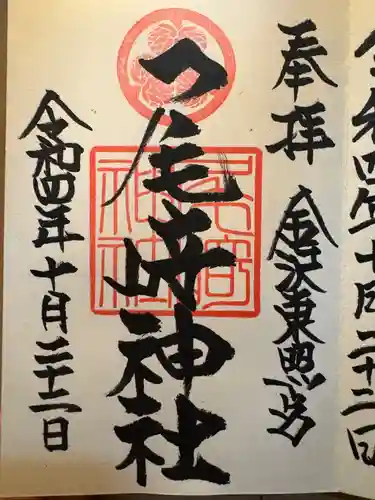 令和四年十月二十二日
奉拝 金沢東照宮
尾崎神社
尾崎神社
令和四年十月二十二日